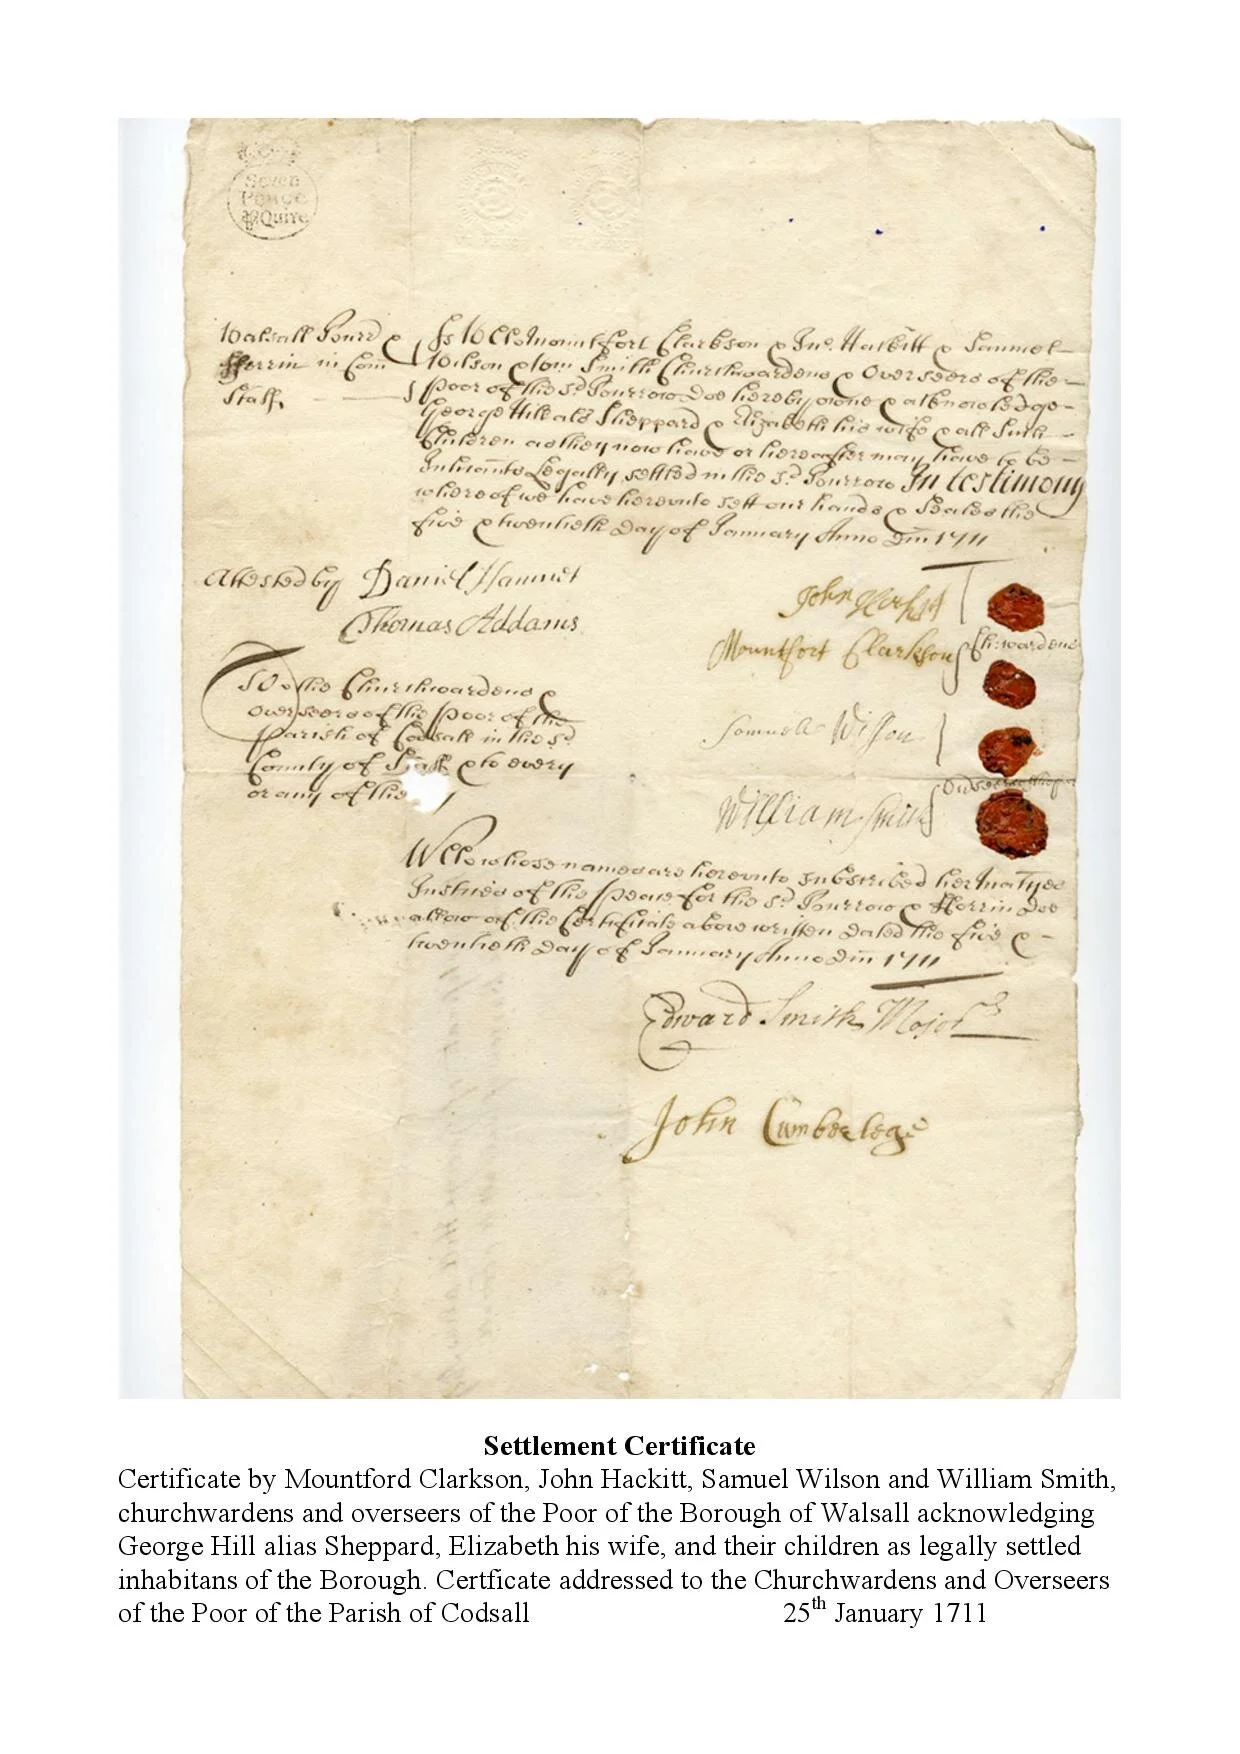 Seven
Pence
Quire
Walsall Burr &
fforrin in Com
Staff.
Wee Mountfort Clarkson & Jno. Hackitt & Samuel
Wilson & Wm Smith Churchwardens & Overseers of the
Poor of the sd. Burrow Doe hereby owne & acknowledge
George Hill als Sheppard & Elizabeth his wife & all such
Children as they now have or hereafter may have to be
Legally settled in the sd. Burrow In testimony
whereof we have hereunto sett our hands & Seales the
five & twentieth Day of January Anno Dm 1711
Attested by Daniel Hammet
Thomas Addams
John
Mountfort Clarkson
Ch:wardens
Samuell Wilson
William Smith
To the Churchwardens &
Overseers of the Poor of the
Parish of Codsall in the sd
County of Staff & to every
or any of the
Wee whose names are hereunto subscribed her Matyes
Justices of the Peace for the sd. Burrow & fforrin Doe
allow of the Certificate above written Dated the five &
twentieth Day of January Anno Dm 1711
Edward Smith Major
John Cumberlege
Settlement Certificate
Certificate by Mountford Clarkson, John Hackitt, Samuel Wilson and William Smith,
churchwardens and overseers of the Poor of the Borough of Walsall acknowledging
George Hill alias Sheppard, Elizabeth his wife, and their children as legally settled
inhabitans of the Borough. Certficate addressed to the Churchwardens and Overseers
of the Poor of the Parish of Codsall 25th January 1711